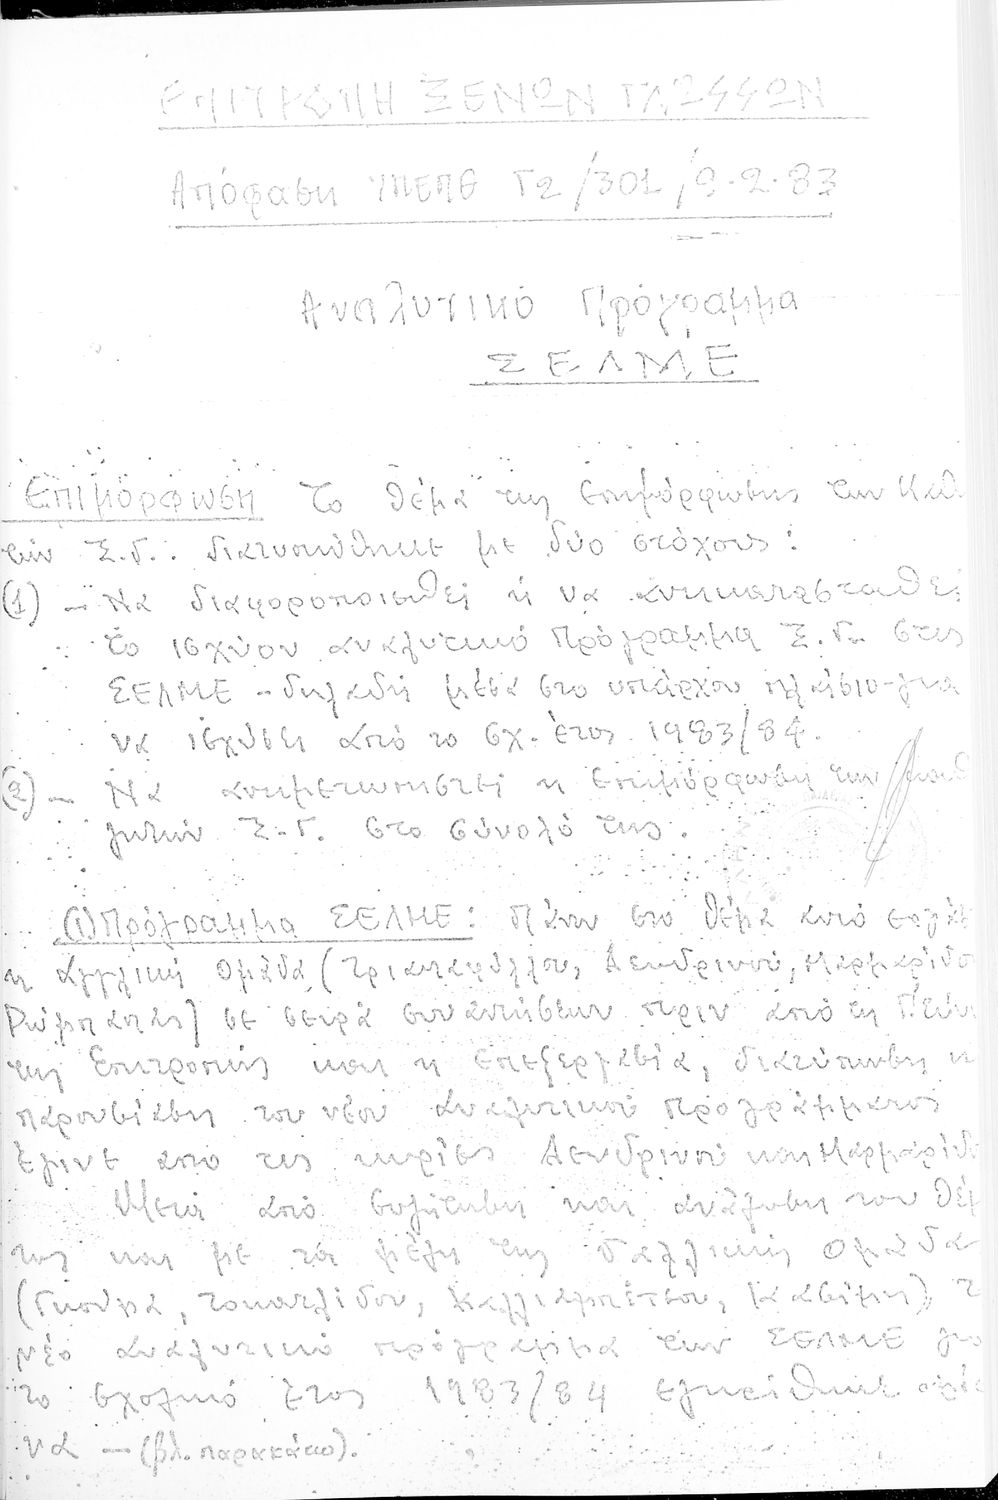 ΕΠΙΤΡΟΠΗ ΞΕΝΩΝ ΓΛΩΣΣΩΝ
Απόφαση ΥΠΕΠΘ Γ2/301/9.2.83
Αναλυτικό Πρόγραμμα
ΣΕΛΜΕ
Επιμόρφωση Το θέμα της επιμόρφωσης των Καθ
των Ξ.Γ.: διατυπώθηκε με δύο στόχους:
(1) - Να διαφοροποιηθεί ή να αντικατασταθεί
το ισχύον αναλυτικό πρόγραμμα Ξ.Γ. στις
ΣΕΛΜΕ - δηλαδή μέσα στο υπάρχον πλαίσιο - για
να ισχύσει από το σχ. έτος 1983/84.
(2) - Να αντιμετωπιστεί η επιμόρφωση των καθ
γητών Ξ.Γ. στο σύνολό της.
(1) Πρόγραμμα ΣΕΛΜΕ: Πάνω στο θέμα αυτό
η αγγλική ομάδα (Τριανταφύλλου, Δενδρινού, Μαρμαρίδου
σε σειρά συναντήσεων πριν από τη
της Επιτροπής και η επεξεργασία, διατύπωση κ
παρουσίαση του νέου αναλυτικού προγράμματος
έγινε από τις κυρίες Δενδρινού και Μαρμαρίδ
Μετά από συζήτηση και ανάλυση του θέμ
τος και με τα μέλη της Γαλλικής Ομάδα
(Γκούμα, Τοκατλίδου, Καλλιαμπέτσου, Κασίμη), τ
νέο αναλυτικό πρόγραμμα των ΣΕΛΜΕ για
το σχολικό έτος 1983/84 εγκρίθηκε
να - (βλ. παρακάτω).